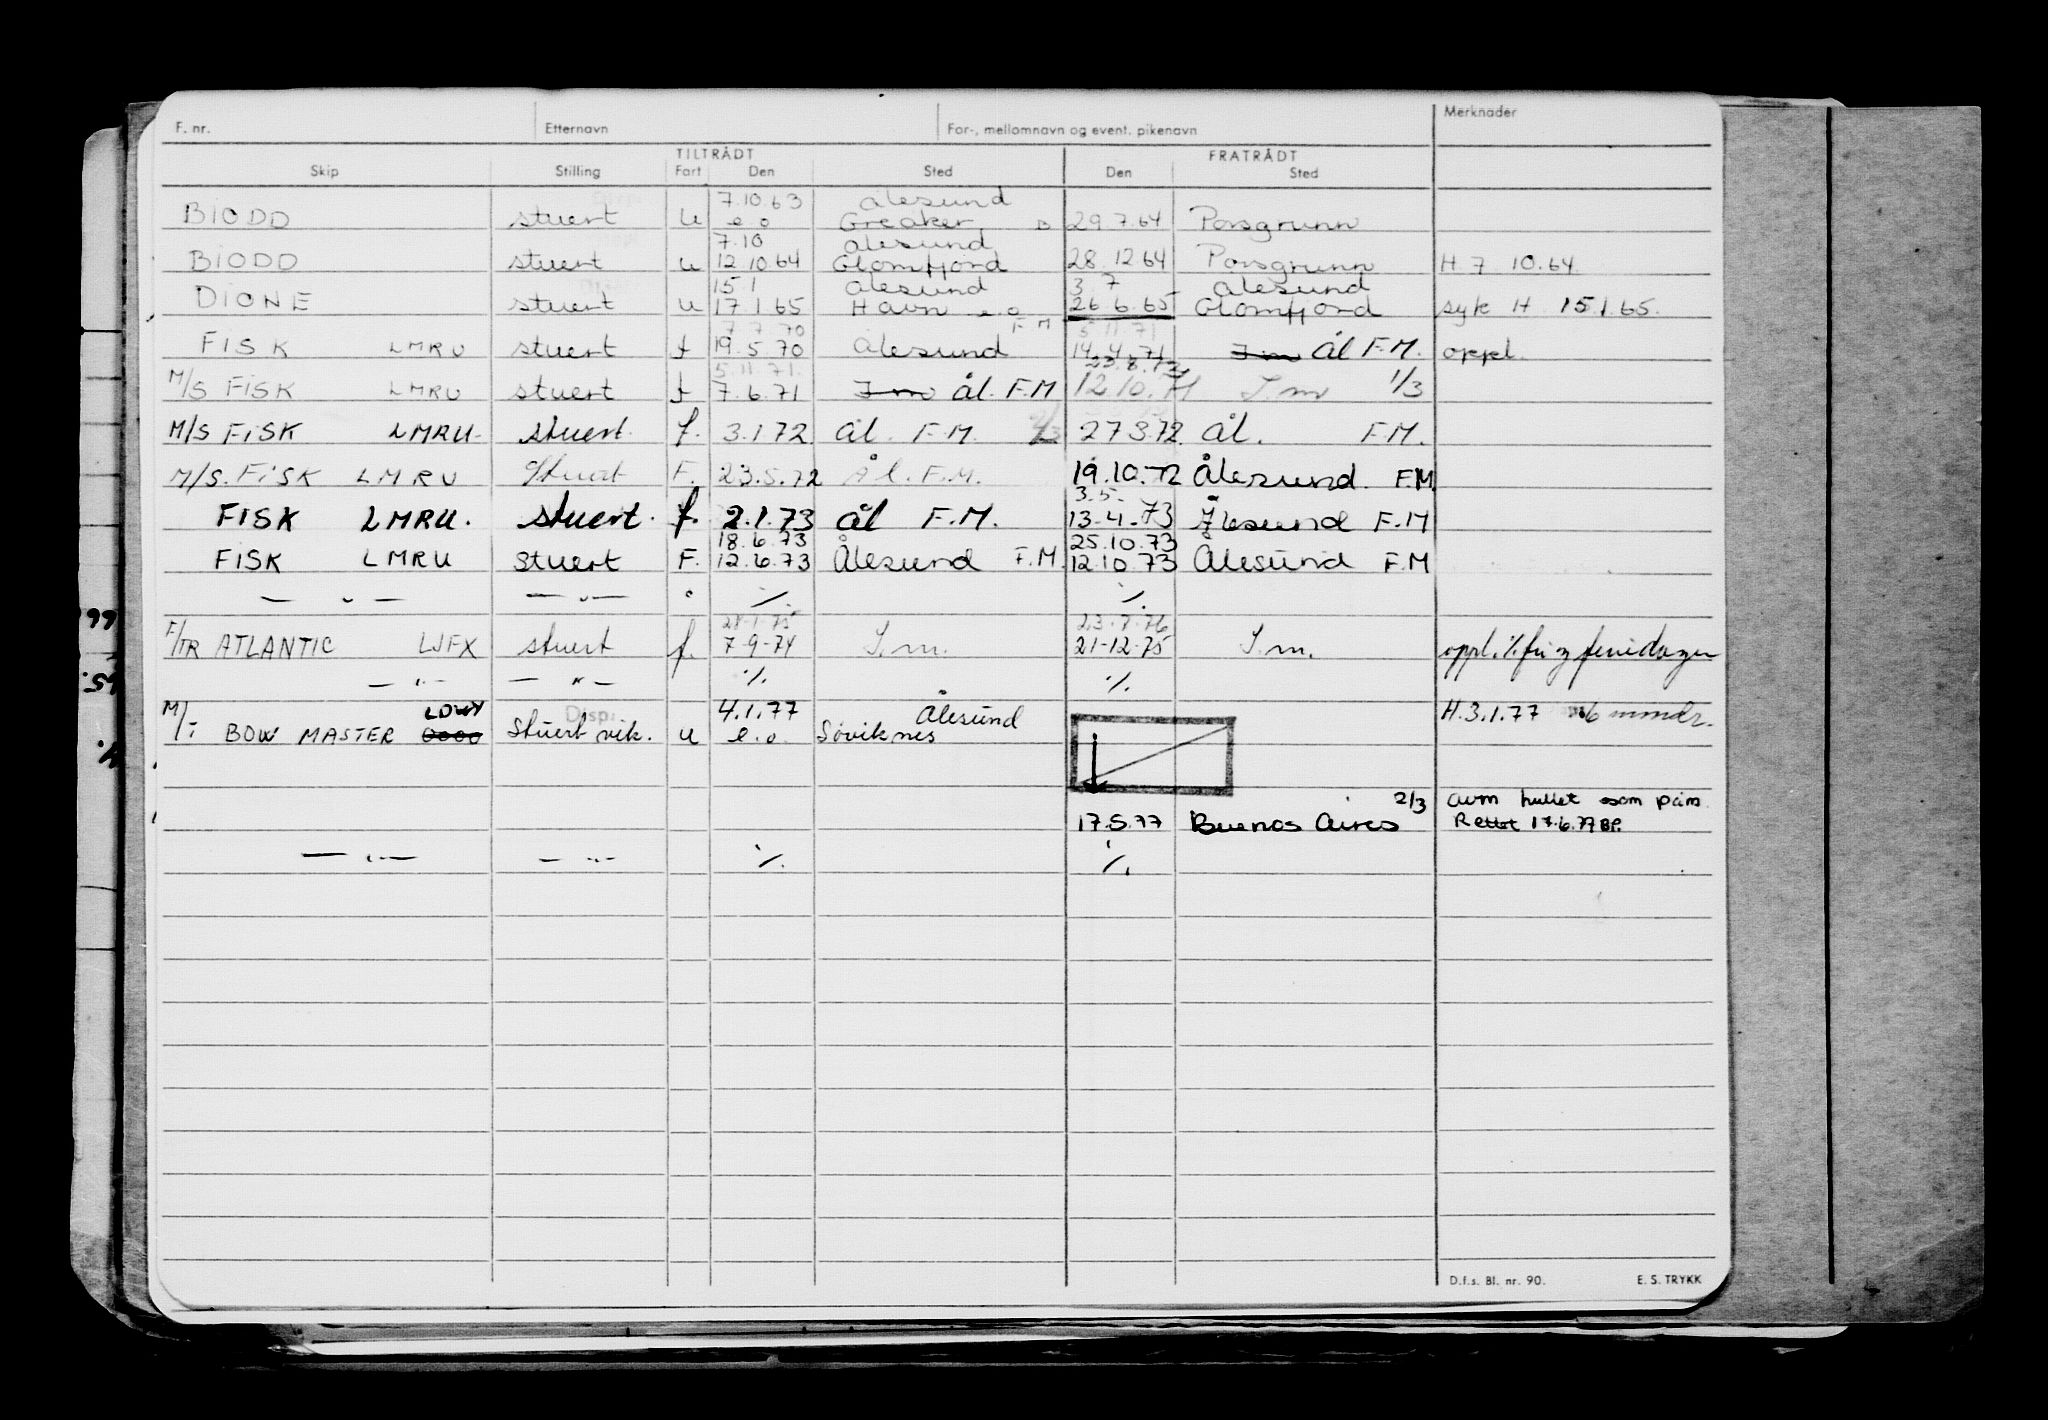 F. nr. Etternavn For-, mellomnavn og event. pikenavn Merknader
TILTRÅDT FRATRÅDT
Skip Stilling Fart Den Sted Den Sted
7.10.63 Ålesund
BIODD stuert u e.o Greaker B 29.7.64 Porsgrunn
7.10 Ålesund
BIODD stuert u 12.10.64 Glomfjord 28.12.64 Porsgrunn H. 7.10.64.
15.1 Ålesund 3.7 Ålesund
DIONE stuert u 17.1.65 Havn e.o 26.6.65 Glomfjord syk H 15.1.65.
7.7.70 F.M 5.11.71
FISK LMRU stuert f 19.5.70 Ålesund 14.4.71 I.m Ål F.M. oppl.
5.11.71.
M/S FISK LMRU stuert f 7.6.71 I m Ål. F.M 12.10.71 I.m 1/3
M/S FISK LMRU. stuert. f. 3.1.72 Ål. F.M. 27.3.72. Ål. F.M.
M/S. FISK LMRU Stuert F. 23.5.72 Ål. F.M. 19.10.72 Ålesund. F.M.
3.5.
FISK LMRU. stuert. f. 2.1.73 Ål F.M. 13-4-73 Ålesund F.M
18.6.73 25.10.73
FISK LMRU stuert F. 12.6.73 Ålesund F.M. 12.10.73 Ålesund F.M
— " — — " — ٪ ٪
28-1-75 23.7.76
F/TR ATLANTIC LJFX stuert f. 7-9-74 I.m. 21-12-75 I.m. oppl. ٪ fri og feriedager
— " — — " — ٪ ٪
LDWY Disp. 4.1.77 Ålesund H.3.1.77 6 mndr.
M/T BOW MASTER 0000 Stuert vik. u e.o. Søviknes
2/3 avm hullet som påm.
17.5.77 Buenos Aires Rettet 17.6.77 BP.
— " — — " — ٪ ٪
D.f.s. Bl. nr. 90. E. S. TRYKK